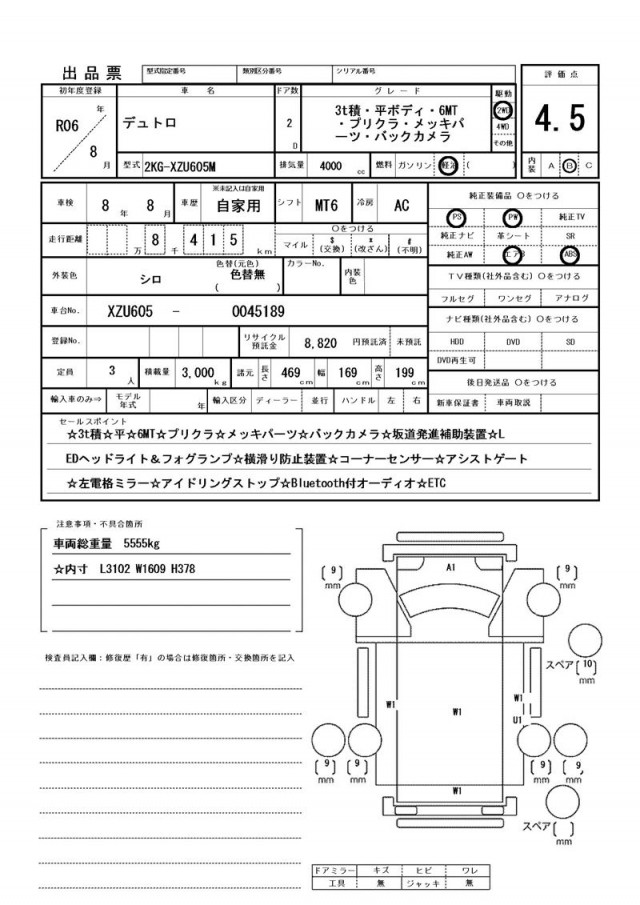 出品票 型式指定番号 類別区分番号 シリアル番号
評価点
4.5
初年度登録 車名 ドア数 グレード 駆動
R06 年 / 8 月
デュトロ
2 D
3t積・平ボディ・6MT
・プリクラ・メッキパ
ーツ・バックカメラ
2WD
4WD
その他
型式 2KG-XZU605M 排気量 4000 cc 燃料 ガソリン 軽油 ( )
内装 A B C
車検 8 年 8 月 車歴 ※未記入は自家用 自家用 シフト MT6 冷房 AC
走行距離 万 8 千 4 1 5 km
○をつける
マイル $(交換) *(改ざん) #(不明)
外装色 シロ 色替(元色) ( 色替無 ) カラーNo. 内装色
車台No. XZU605 - 0045189
登録No. リサイクル預託金 8,820 円預託済 未預託
定員 3 人 積載量 3,000 kg 諸元 長さ 469 cm 幅 169 cm 高さ 199 cm
輸入車のみ⇒ モデル年式 年 輸入区分 ディーラー 並行 ハンドル 左 右
純正装備品 ○をつける
PS PW 純正TV
純正ナビ 革シート SR
純正AW エアB ABS
TV種類(社外品含む) ○をつける
フルセグ ワンセグ アナログ
ナビ種類(社外品含む) ○をつける
HDD DVD SD
DVD再生可
後日発送品 ○をつける
新車保証書 車両取説
セールスポイント
☆3t積☆平☆6MT☆プリクラ☆メッキパーツ☆バックカメラ☆坂道発進補助装置☆L
EDヘッドライト＆フォグランプ☆横滑り防止装置☆コーナーセンサー☆アシストゲート
☆左電格ミラー☆アイドリングストップ☆Bluetooth付オーディオ☆ETC
注意事項・不具合箇所
車両総重量 5555kg
☆内寸 L3102 W1609 H378
検査員記入欄：修復歴「有」の場合は修復箇所・交換箇所を記入
A1
[ 9 ] mm
[ 9 ] mm
スペア [ 10 ] mm
W1
W1
W1
U1
[ 9 ] mm
[ 9 ] mm
[ 9 ] mm
[ 9 ] mm
W1
スペア [ ] mm
ドアミラー キズ ヒビ ワレ
工具 無 ジャッキ 無